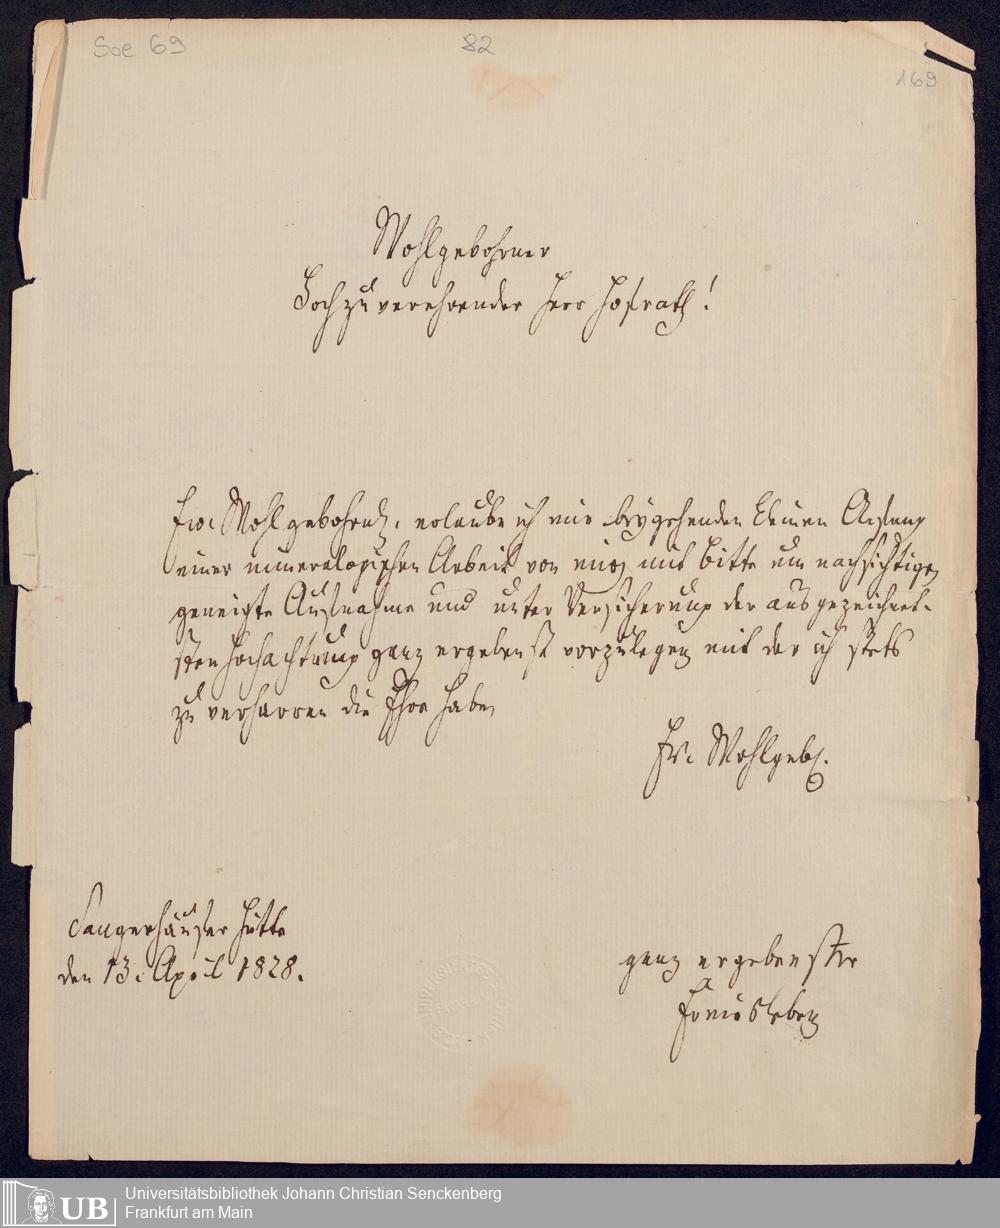 Soe 69
82
169
Wohlgebohrner
Hochzuverehrender Herr Hofrath!
Ew. Wohlgebohrnen erlaube ich mir beygehenden kleinen Anfang
einer mineralogischen Arbeit von mir, mit Bitte um nachsichtige
geneigte Aufnahme und unter Versicherung der ausgezeichnet-
sten Hochachtung ganz ergebenst vorzulegen mit der ich stets
zu verharren die Ehre habe
Ew. Wohlgeb.
Sangerhäuser Hütte
den 13. April 1828.
ganz ergebenster
Freiesleben
UB
Universitätsbibliothek Johann Christian Senckenberg
Frankfurt am Main